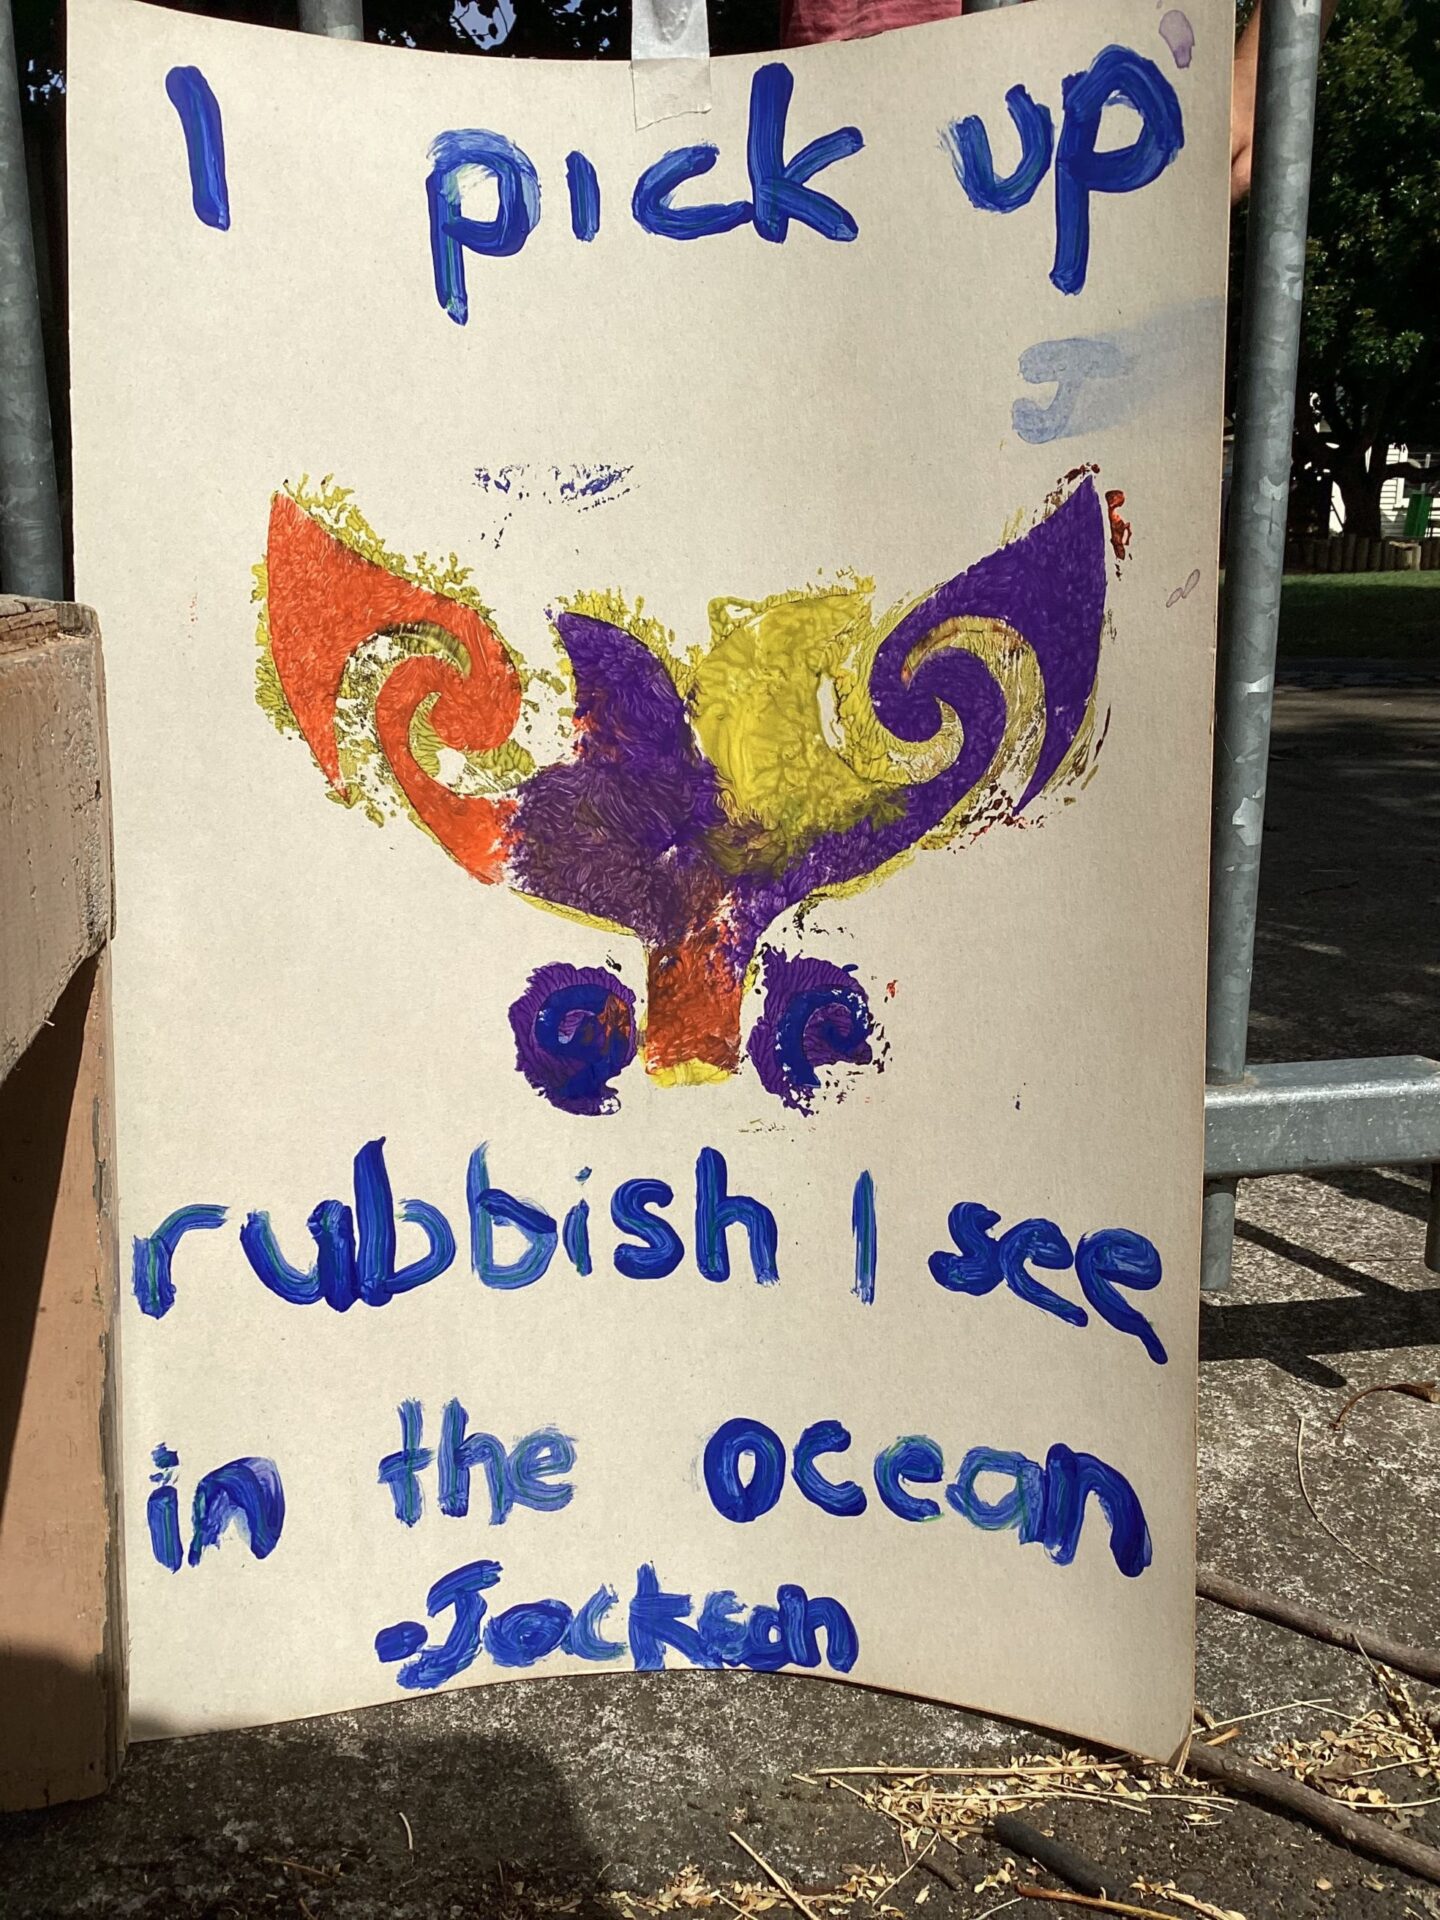 I pick up
J
rubbish I see
in the ocean
-Jackson